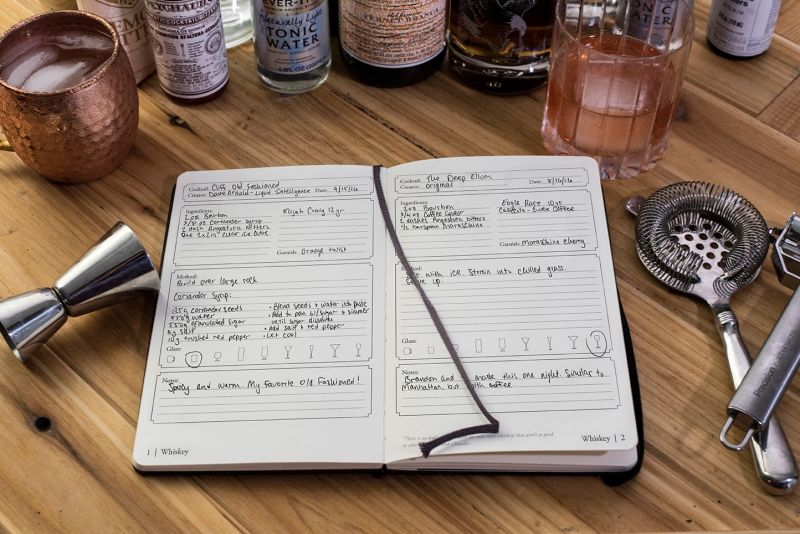 COCKTAIL BITTERS
EVER-TREE
Naturally Light
TONIC
WATER
Cocktail: Cuff Old Fashioned
Creator: Dave Arnold - Liquid Intelligence Date: 9/15/16
Ingredients:
2oz Bourbon
Elijah Craig 12yr
3/8 oz Coriander Syrup
2 dash Angostura bitters
One 2x2in clear ice cube
Garnish: Orange twist
Method:
Build over large rock
Coriander Syrup:
125g coriander seeds
550g water
550g granulated sugar
5g salt
10g crushed red pepper
• Blend seeds & water into paste
• Add to pan w/ sugar & simmer
until sugar dissolves
• Add salt & red pepper
• Let cool
Glass:
Notes:
Spicy and warm. My favorite Old Fashioned!
1 | Whiskey
Cocktail: The Deep Ellum
Creator: original Date: 8/16/16
Ingredients:
2oz Bourbon
Eagle Rare 10yr
3/4 oz Coffee Liqueur
2 dashes Angostura bitters
1/2 barspoon Maraschino
Garnish: Maraschino Cherry
Method:
with ice. Strain into chilled glass.
up.
Glass:
Notes:
Brandon and made this one night. Similar to
Manhattan, but with coffee
Whiskey | 2
Precision